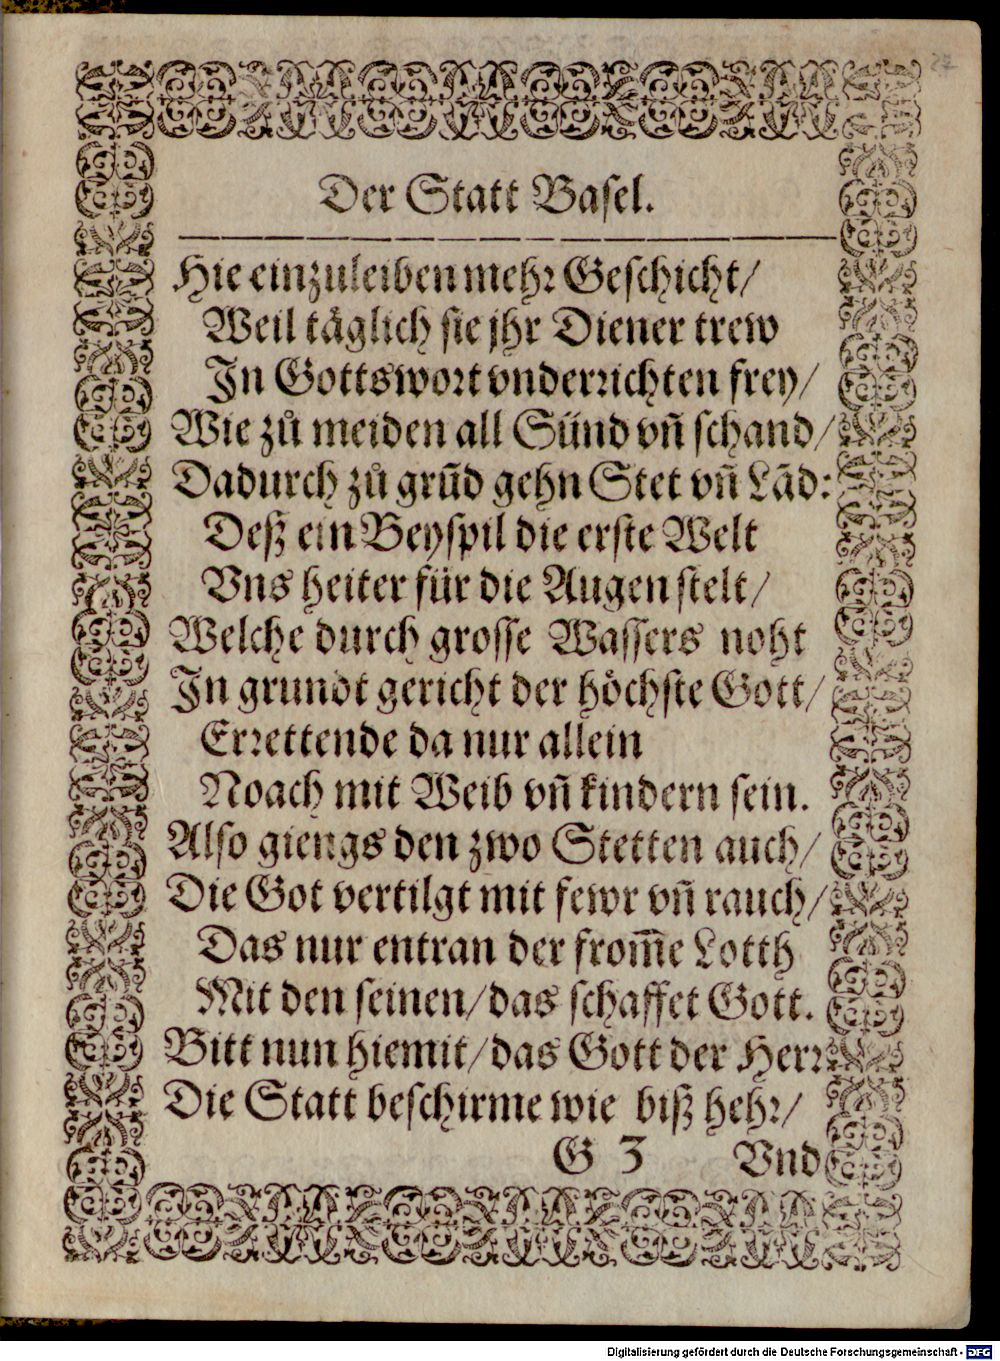 27
Der Statt Basel.
Hie einzuleiben mehr Geschicht/
Weil täglich sie jhr Diener trew
In Gottswort vnderrichten frey/
Wie zů meiden all Sünd vñ schand/
Dadurch zů grũd gehn Stet vñ Lãd:
Deß ein Beyspil die erste Welt
Vns heiter für die Augen stelt/
Welche durch grosse Wassers noht
In grundt gericht der höchste Gott/
Errettende da nur allein
Noach mit Weib vñ kindern sein.
Also giengs den zwo Stetten auch/
Die Got vertilgt mit fewr vñ rauch/
Das nur entran der from̃e Lotth
Mit den seinen/das schaffet Gott.
Bitt nun hiemit/das Gott der Herr
Die Statt beschirme wie biß hehr/
G 3 Vnd
Digitalisierung gefördert durch die Deutsche Forschungsgemeinschaft - DFG